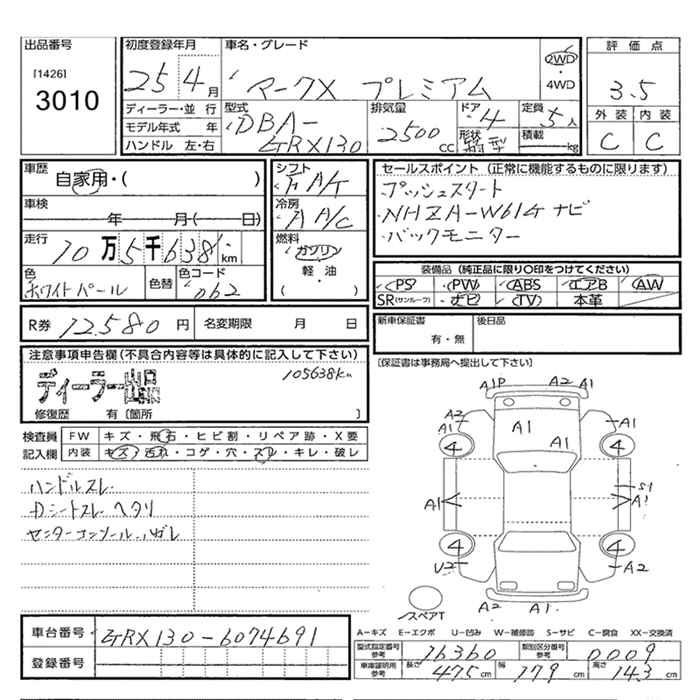 出品番号 初度登録年月 車名・グレード 評価点
[1426] 25 4月 マークX プレミアム 2WD・4WD 3.5
3010
ディーラー・並行 型式 排気量 ドア 4 定員 5人 外装 内装
モデル年式 年 DBA- 2500cc 形状 積載 kg C C
ハンドル 左・右 GRX130
車歴 シフト セールスポイント (正常に機能するものに限ります)
自家用・( ) F A/T プッシュスタート
車検 冷房 NHZA-W61G ナビ
年 月(ー 日) A A/C バックモニター
走行 10万5千638km 燃料 ガソリン
軽・油 装備品 (純正品に限り○印をつけてください)
色 色替 色コード ( ) PS PW ABS エアB AW
ホワイトパール 062 SR(サンルーフ) ナビ TV 本革
R券 12,580円 名変期限 月 日 新車保証書 後日品
有・無
注意事項申告欄(不具合内容等は具体的に記入して下さい) [保証書は事務局へ提出して下さい]
ディーラー出品 105638Km
修復歴 有〔箇所 〕
検査員 FW キズ・飛石・ヒビ割・リペア跡・X要
記入欄 内装 キズ・汚れ・コゲ・穴・スレ・キレ・破レ
ハンドルスレ
Dシートスレ ヘタリ
センターコンソールハガレ
A1P A2 A1
A2 A1
A1 A1 A1 A1
4 4
S1
A1 A1
4 4
U2 A2
スペアT A2 A1
車台番号 GRX130-6074691
A-キズ E-エクボ U-凹み W-補修跡 S-サビ C-腐食 XX-交換済
型式指定番号 参考 16360 類別区分番号 参考 0009
登録番号 車庫証明用 参考 長さ 475cm 幅 179cm 高さ 143cm